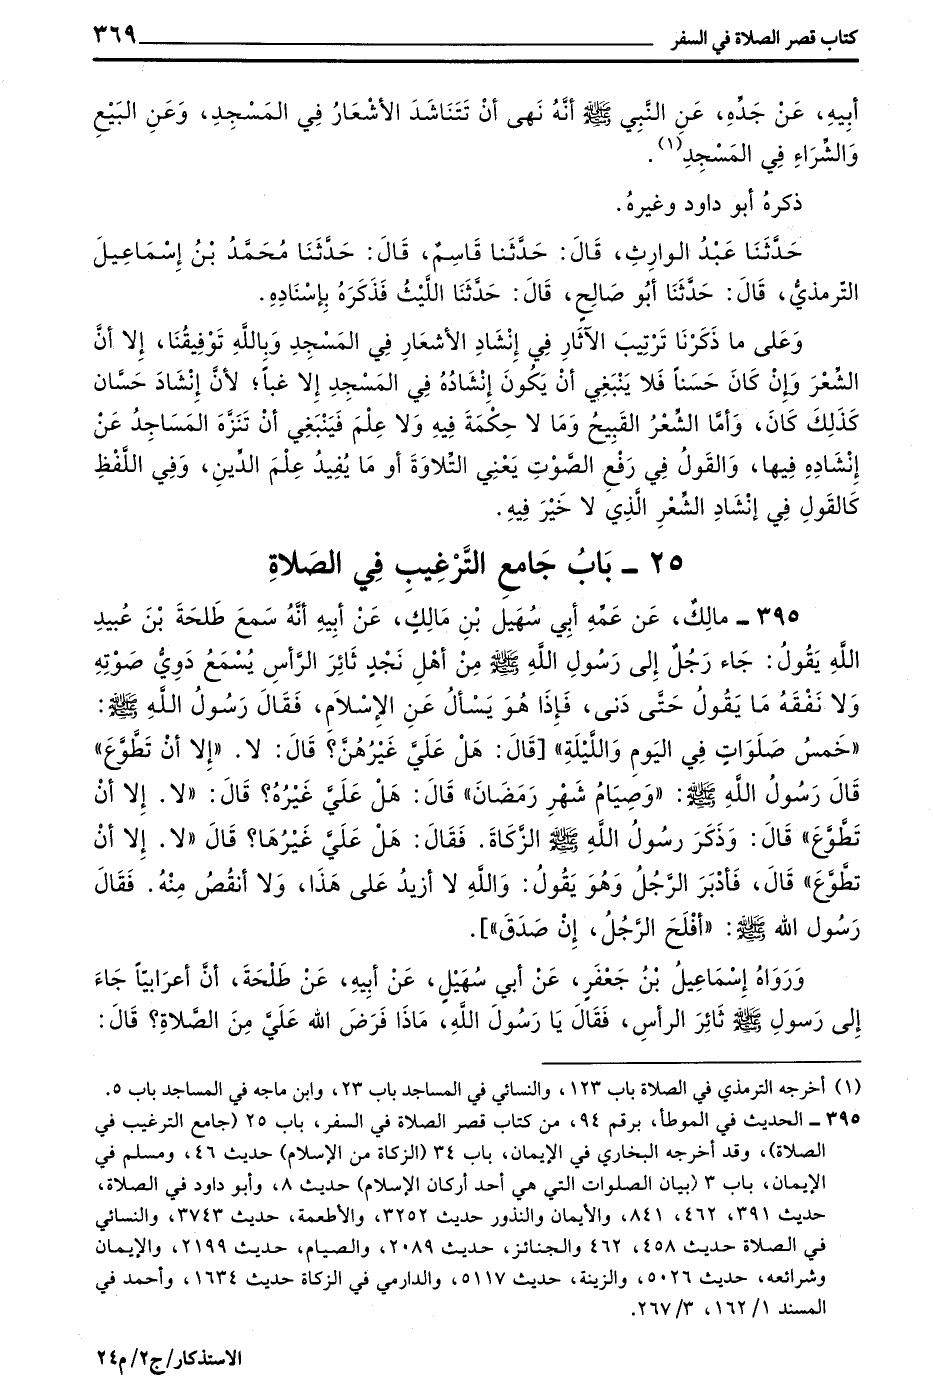 كتاب قصر الصلاة في السفر ٣٦٩
أبِيهِ، عَنْ جَدِّهِ، عَنِ النَّبِي ﷺ أنَّهُ نَهى أنْ تَتَناشَدَ الأشْعَارُ فِي المَسْجِدِ، وَعَنِ البَيْعِ
وَالشِّرَاءِ فِي المَسْجِدِ(١).
ذكرهُ أبو داود وغيرهُ.
حَدَّثَنَا عَبْدُ الوارِثِ، قَالَ: حَدَّثَنا قَاسِمٌ، قَالَ: حَدَّثَنَا مُحَمَّدُ بْنُ إِسْمَاعِيلَ
التّرمذيُّ، قَالَ: حَدَّثَنَا أبُو صَالِحٍ، قَالَ: حَدَّثَنَا اللَّيْثُ فَذَكَرَهُ بِإسْنَادِهِ.
وَعَلى ما ذَكَرْنَا تَرْتِيبَ الآثَارِ فِي إنْشَادِ الأشعَارِ فِي المَسْجِدِ وَبِاللَّهِ تَوْفِيقُنَا، إلا أنَّ
الشِّعْرَ وَإنْ كَانَ حَسَناً فَلا يَنْبَغِي أنْ يَكُونَ إنْشَادُهُ فِي المَسْجِدِ إلا غباً؛ لأنَّ إنْشَادَ حَسَّان
كَذَلِكَ كَانَ، وَأمَّا الشِّعْرُ القَبِيحُ وَمَا لا حِكْمَةَ فِيهِ وَلا عِلْمَ فَيَنْبَغِي أنْ تَنَزَّهَ المَسَاجِدُ عَنْ
إنْشَادِهِ فِيها، وَالقَولُ فِي رَفْعِ الصَّوْتِ يَعْنِي التِّلاوَةَ أو مَا يُفِيدُ عِلْمَ الدِّينِ، وَفِي اللَّفْظِ
كَالقَولِ فِي إنْشَادِ الشِّعْرِ الَّذِي لا خَيْرَ فِيهِ.
٢٥ ـ بَابُ جَامعِ التَّرْغِيبِ فِي الصَلاةِ
٣٩٥ ـ مالِكٌ، عَن عَمِّهِ أبي سُهَيلِ بْنِ مَالِكٍ، عَنْ أبِيهِ أنَّهُ سَمِعَ طَلحَةَ بْنَ عُبيدِ
اللَّهِ يَقُولُ: جَاء رَجُلٌ إلى رَسُولِ اللَّهِ ﷺ مِنْ أهْلِ نَجْدٍ ثَائِرَ الرَّأسِ يُسْمَعُ دَوِيُّ صَوْتِهِ
وَلا نَفْقَهُ مَا يَقُولُ حَتَّى دَنى، فَإذَا هُوَ يَسْألُ عَنِ الإسْلاَمِ، فَقَالَ رَسُولُ اللَّهِ ﷺ:
«خَمسُ صَلَوَاتٍ فِي اليَومِ وَاللَّيْلَةِ» [قَالَ: هَلْ عَلَيَّ غَيْرُهُنَّ؟ قَالَ: لا. «إلا أنْ تَطَّوَّعَ»
قَالَ رَسُولُ اللَّهِ ﷺ: «وَصِيَامُ شَهْرِ رَمَضَانَ» قَالَ: هَلْ عَلَيَّ غَيْرُهُ؟ قَالَ: «لا. إلا أنْ
تَطَّوَّعَ» قَالَ: وَذَكَرَ رسُولُ اللَّهِ ﷺ الزَّكَاةَ. فَقَالَ: هَلْ عَلَيَّ غَيْرُهَا؟ قَالَ «لا. إلا أنْ
تطَّوَّعَ» قَالَ، فَأدْبَرَ الرَّجُلُ وَهُوَ يَقُولُ: وَاللَّهِ لا أزيدُ عَلى هَذَا، وَلا أنقُصُ مِنْهُ. فَقَالَ
رَسُول الله ﷺ: «أفْلَحَ الرَّجُلُ، إنْ صَدَقَ»].
وَرَوَاهُ إسْمَاعِيلُ بْنُ جَعْفَرٍ، عَنْ أبي سُهَيْلٍ، عَنْ أبِيهِ، عَنْ طَلْحَةَ، أنَّ أعرَابيّاً جَاءَ
إلى رَسولِ ﷺ ثَائِرَ الرأسِ، فَقَالَ يَا رَسُولَ اللَّهِ، مَاذَا فَرَضَ الله عَلَيَّ مِنَ الصَّلاةِ؟ قَالَ:
(١) أخرجه الترمذي في الصلاة باب ١٢٣، والنسائي في المساجد باب ٢٣، وابن ماجه في المساجد باب ٥.
٣٩٥ ـ الحديث في الموطأ، برقم ٩٤، من كتاب قصر الصلاة في السفر، باب ٢٥ (جامع الترغيب في
الصلاة)، وقد أخرجه البخاري في الإيمان، باب ٣٤ (الزكاة من الإسلام) حديث ٤٦، ومسلم في
الإيمان، باب ٣ (بيان الصلوات التي هي أحد أركان الإسلام) حديث ٨، وأبو داود في الصلاة،
حديث ٣٩١، ٤٦٢، ٨٤١، والأيمان والنذور حديث ٣٢٥٢، والأطعمة، حديث ٣٧٤٣، والنسائي
في الصلاة حديث ٤٥٨، ٤٦٢ والجنائز، حديث ٢٠٨٩، والصيام، حديث ٢١٩٩، والإيمان
وشرائعه، حديث ٥٠٢٦، والزينة، حديث ٥١١٧، والدارمي في الزكاة حديث ١٦٣٤، وأحمد في
المسند ١/ ١٦٢، ٣/ ٢٦٧.
الاستذكار/ج٢/م٢٤